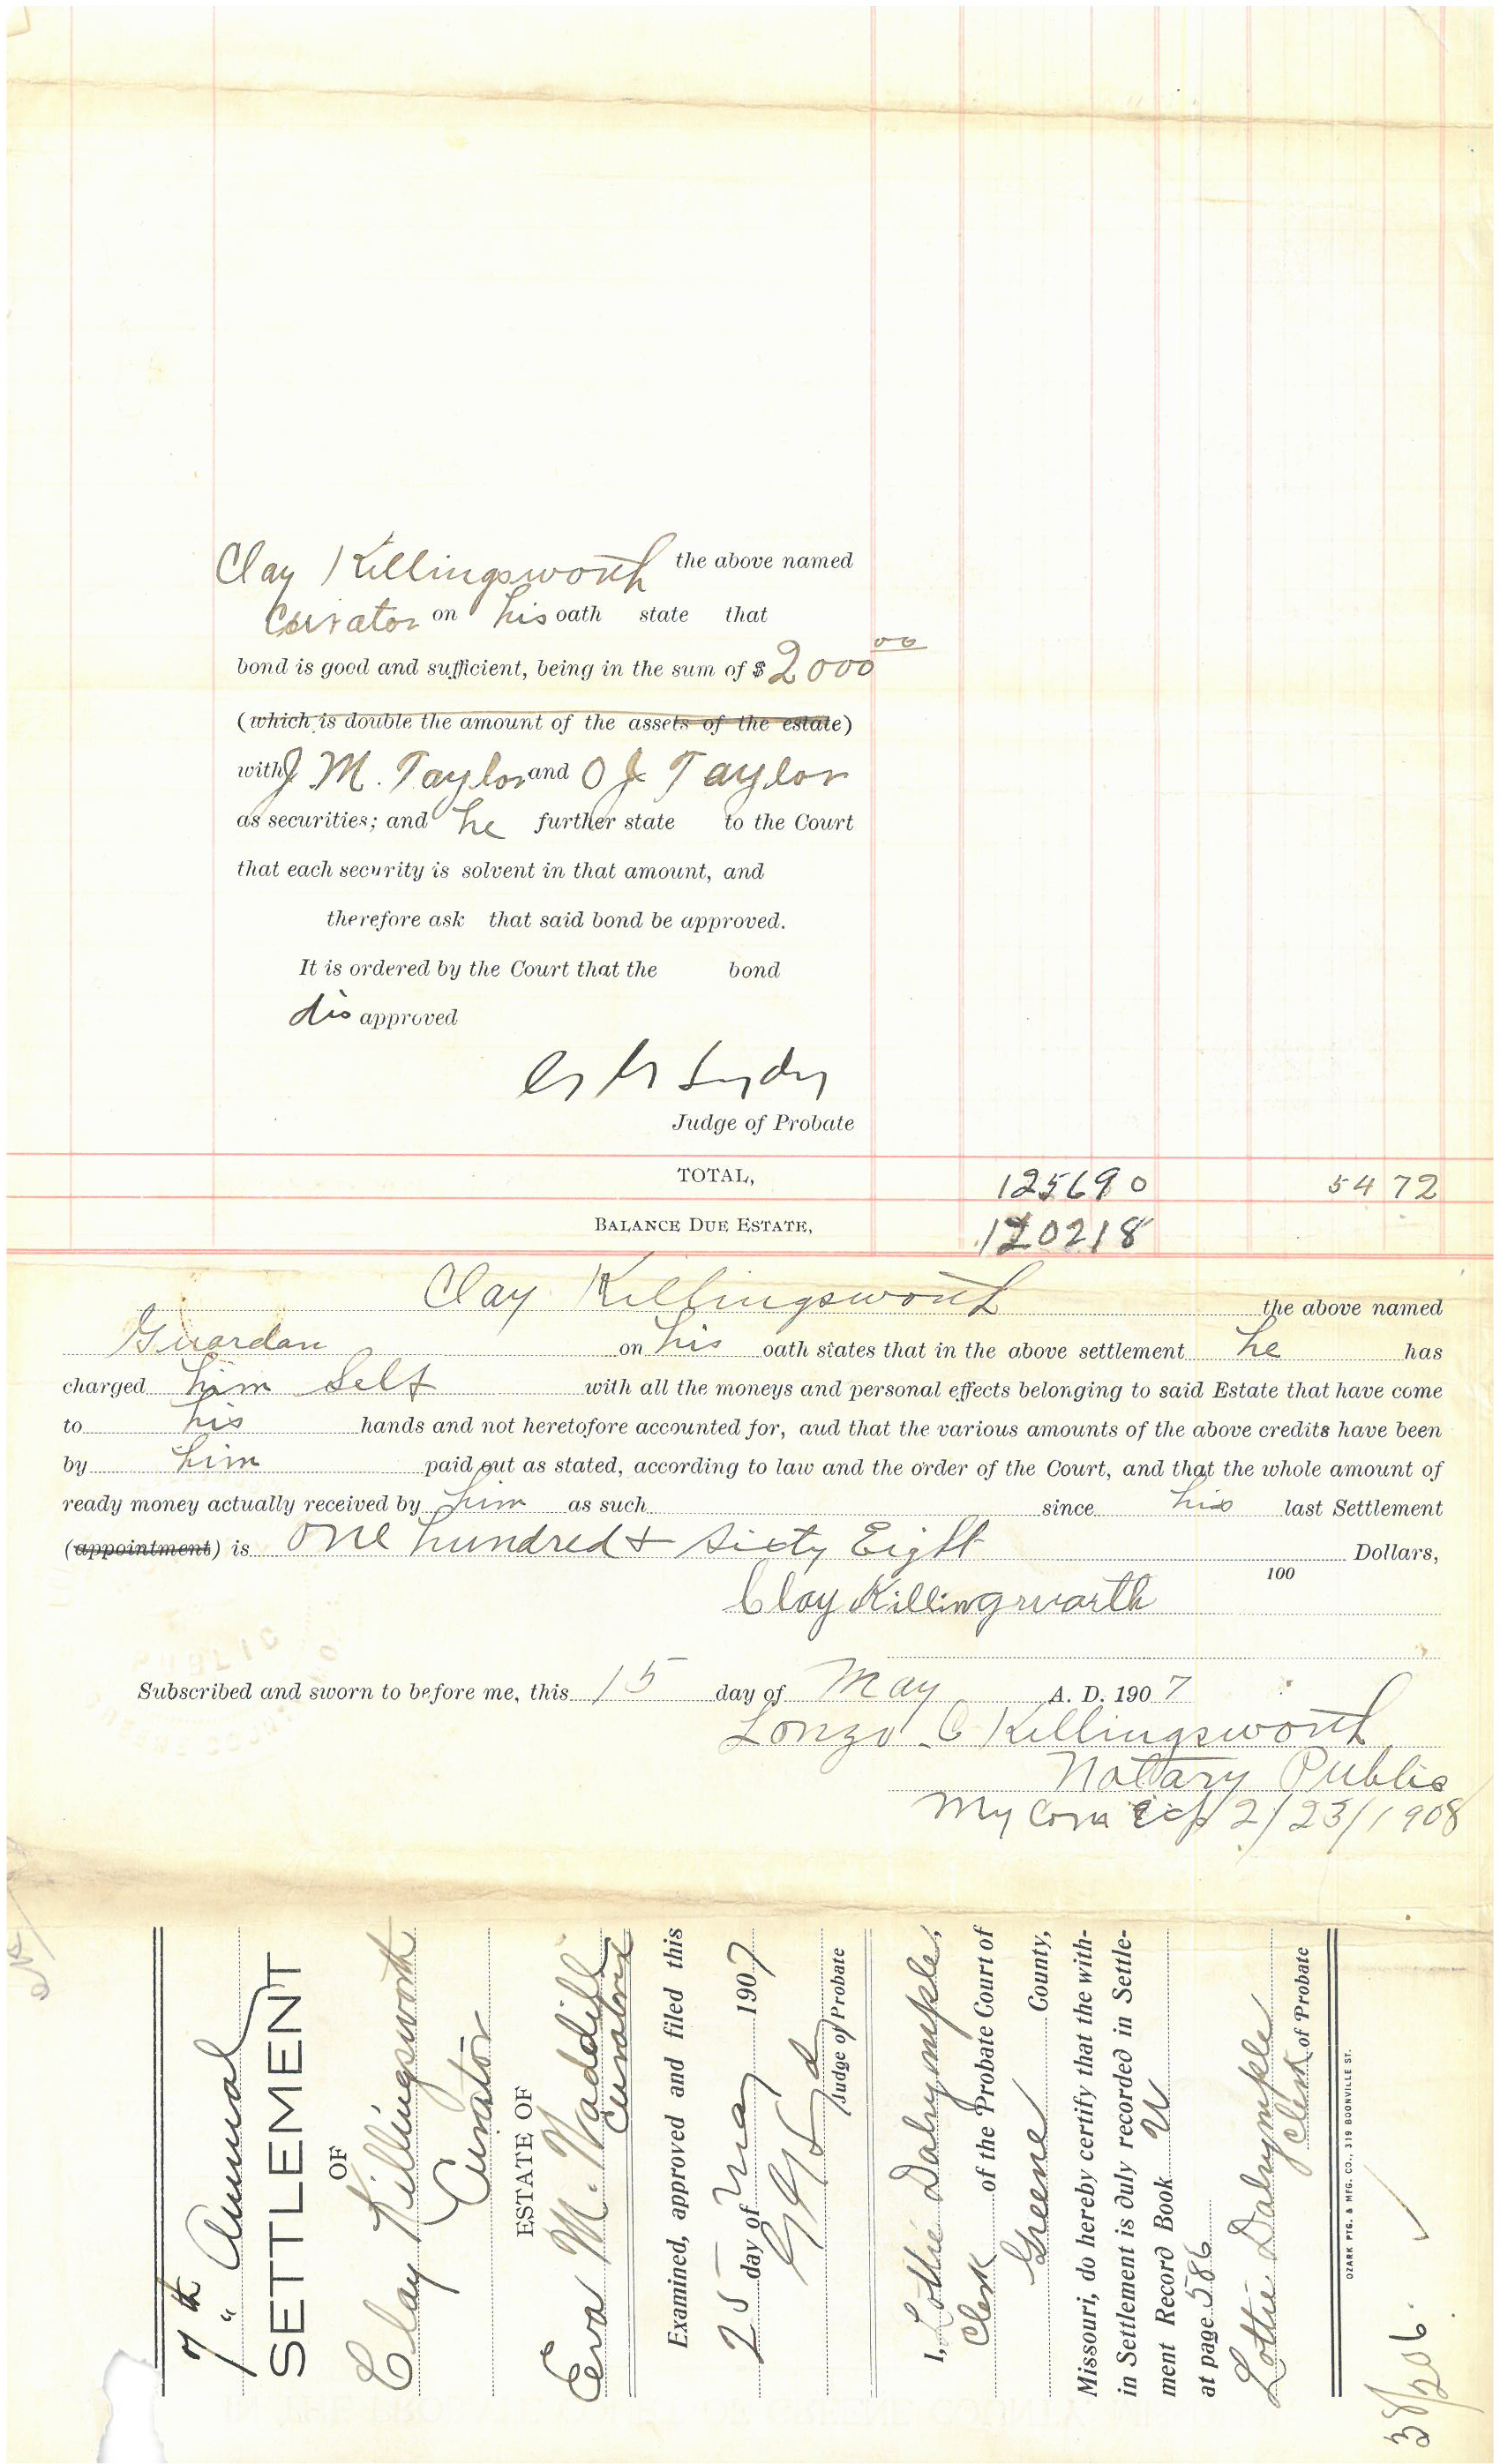 Clay Killingsworth the above named
Curator on his oath state that
bond is good and sufficient, being in the sum of $ 2000 00
(which is double the amount of the assets of the estate)
with J M. Taylor and O J Taylor
as securities; and he further state to the Court
that each security is solvent in that amount, and
therefore ask that said bond be approved.
It is ordered by the Court that the bond
dis approved
Judge of Probate
TOTAL, 1256 90 54 72
BALANCE DUE ESTATE, 1202 18
Clay Killingsworth the above named
Guardan on his oath states that in the above settlement he has
charged him Self with all the moneys and personal effects belonging to said Estate that have come
to his hands and not heretofore accounted for, aud that the various amounts of the above credits have been
by him paid out as stated, according to law and the order of the Court, and that the whole amount of
ready money actually received by him as such since his last Settlement
(appointment) is One hundred & Sixty Eight Dollars,
100
Clay Killingsworth
Subscribed and sworn to before me, this 15 day of May A. D. 1907
Lonzo C Killingsworth
Nottary Public
My Com Exp 2/23/1908
7th Annual
SETTLEMENT
OF
Clay Killingsworth
Curator
ESTATE OF
Eva M. Waddill
Examined, approved and filed this
25 day of May 1907
Judge of Probate
I, Lottie Dalrymple,
Clerk of the Probate Court of
Greene County,
Missouri, do hereby certify that the with-
in Settlement is duly recorded in Settle-
ment Record Book U
at page 586
Lottie Dalrymple
Clerk of Probate
OZARK PTG. & MFG. CO., 319 BOONVILLE ST.